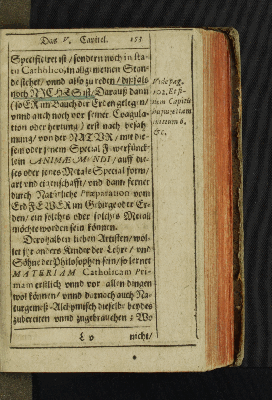 Das V. Capitel. 153
Specificiret ist / sondern noch in sta-
tu Catholico, in allgemeinen Stan-
de stehet / vnnd also zu reden / dißfals
noch NICHES ist / Darauß dann
(so ER im Bauch der Erden gelegen /
vnnd auch noch vor seiner Coagula-
tion oder hertung) erst nach besatz
mung / von der NATVR, mit die-
sem oder jenem Special
lein CANIMÆ MVNDI / auff die-
ses oder jenes Metals Special form /
art vnd eigenschafft / vnd dann ferner
durch Natürliche Præparation vom
Erd FEWER im Gebirge oder Er-
den / ein solches oder solchs Metall
möchte worden sein können.
Derohalben lieben Artisten / wöl-
let jhr anders Kinder der Lehre / vnd
Söhne der Philosophen sein / so lernet
MATERIAM Catholicam Pri-
mam erstlich vnnd vor allen dingen
wol können / vnnd darnach auch Na-
turgemeß-Alchymisch dieselbe beydes
zubereiten vnnd zugebrauchen: Wo
L v nicht /
Vide pag.
102. Et fi-
nem Capitis
hujus etiam
&c.